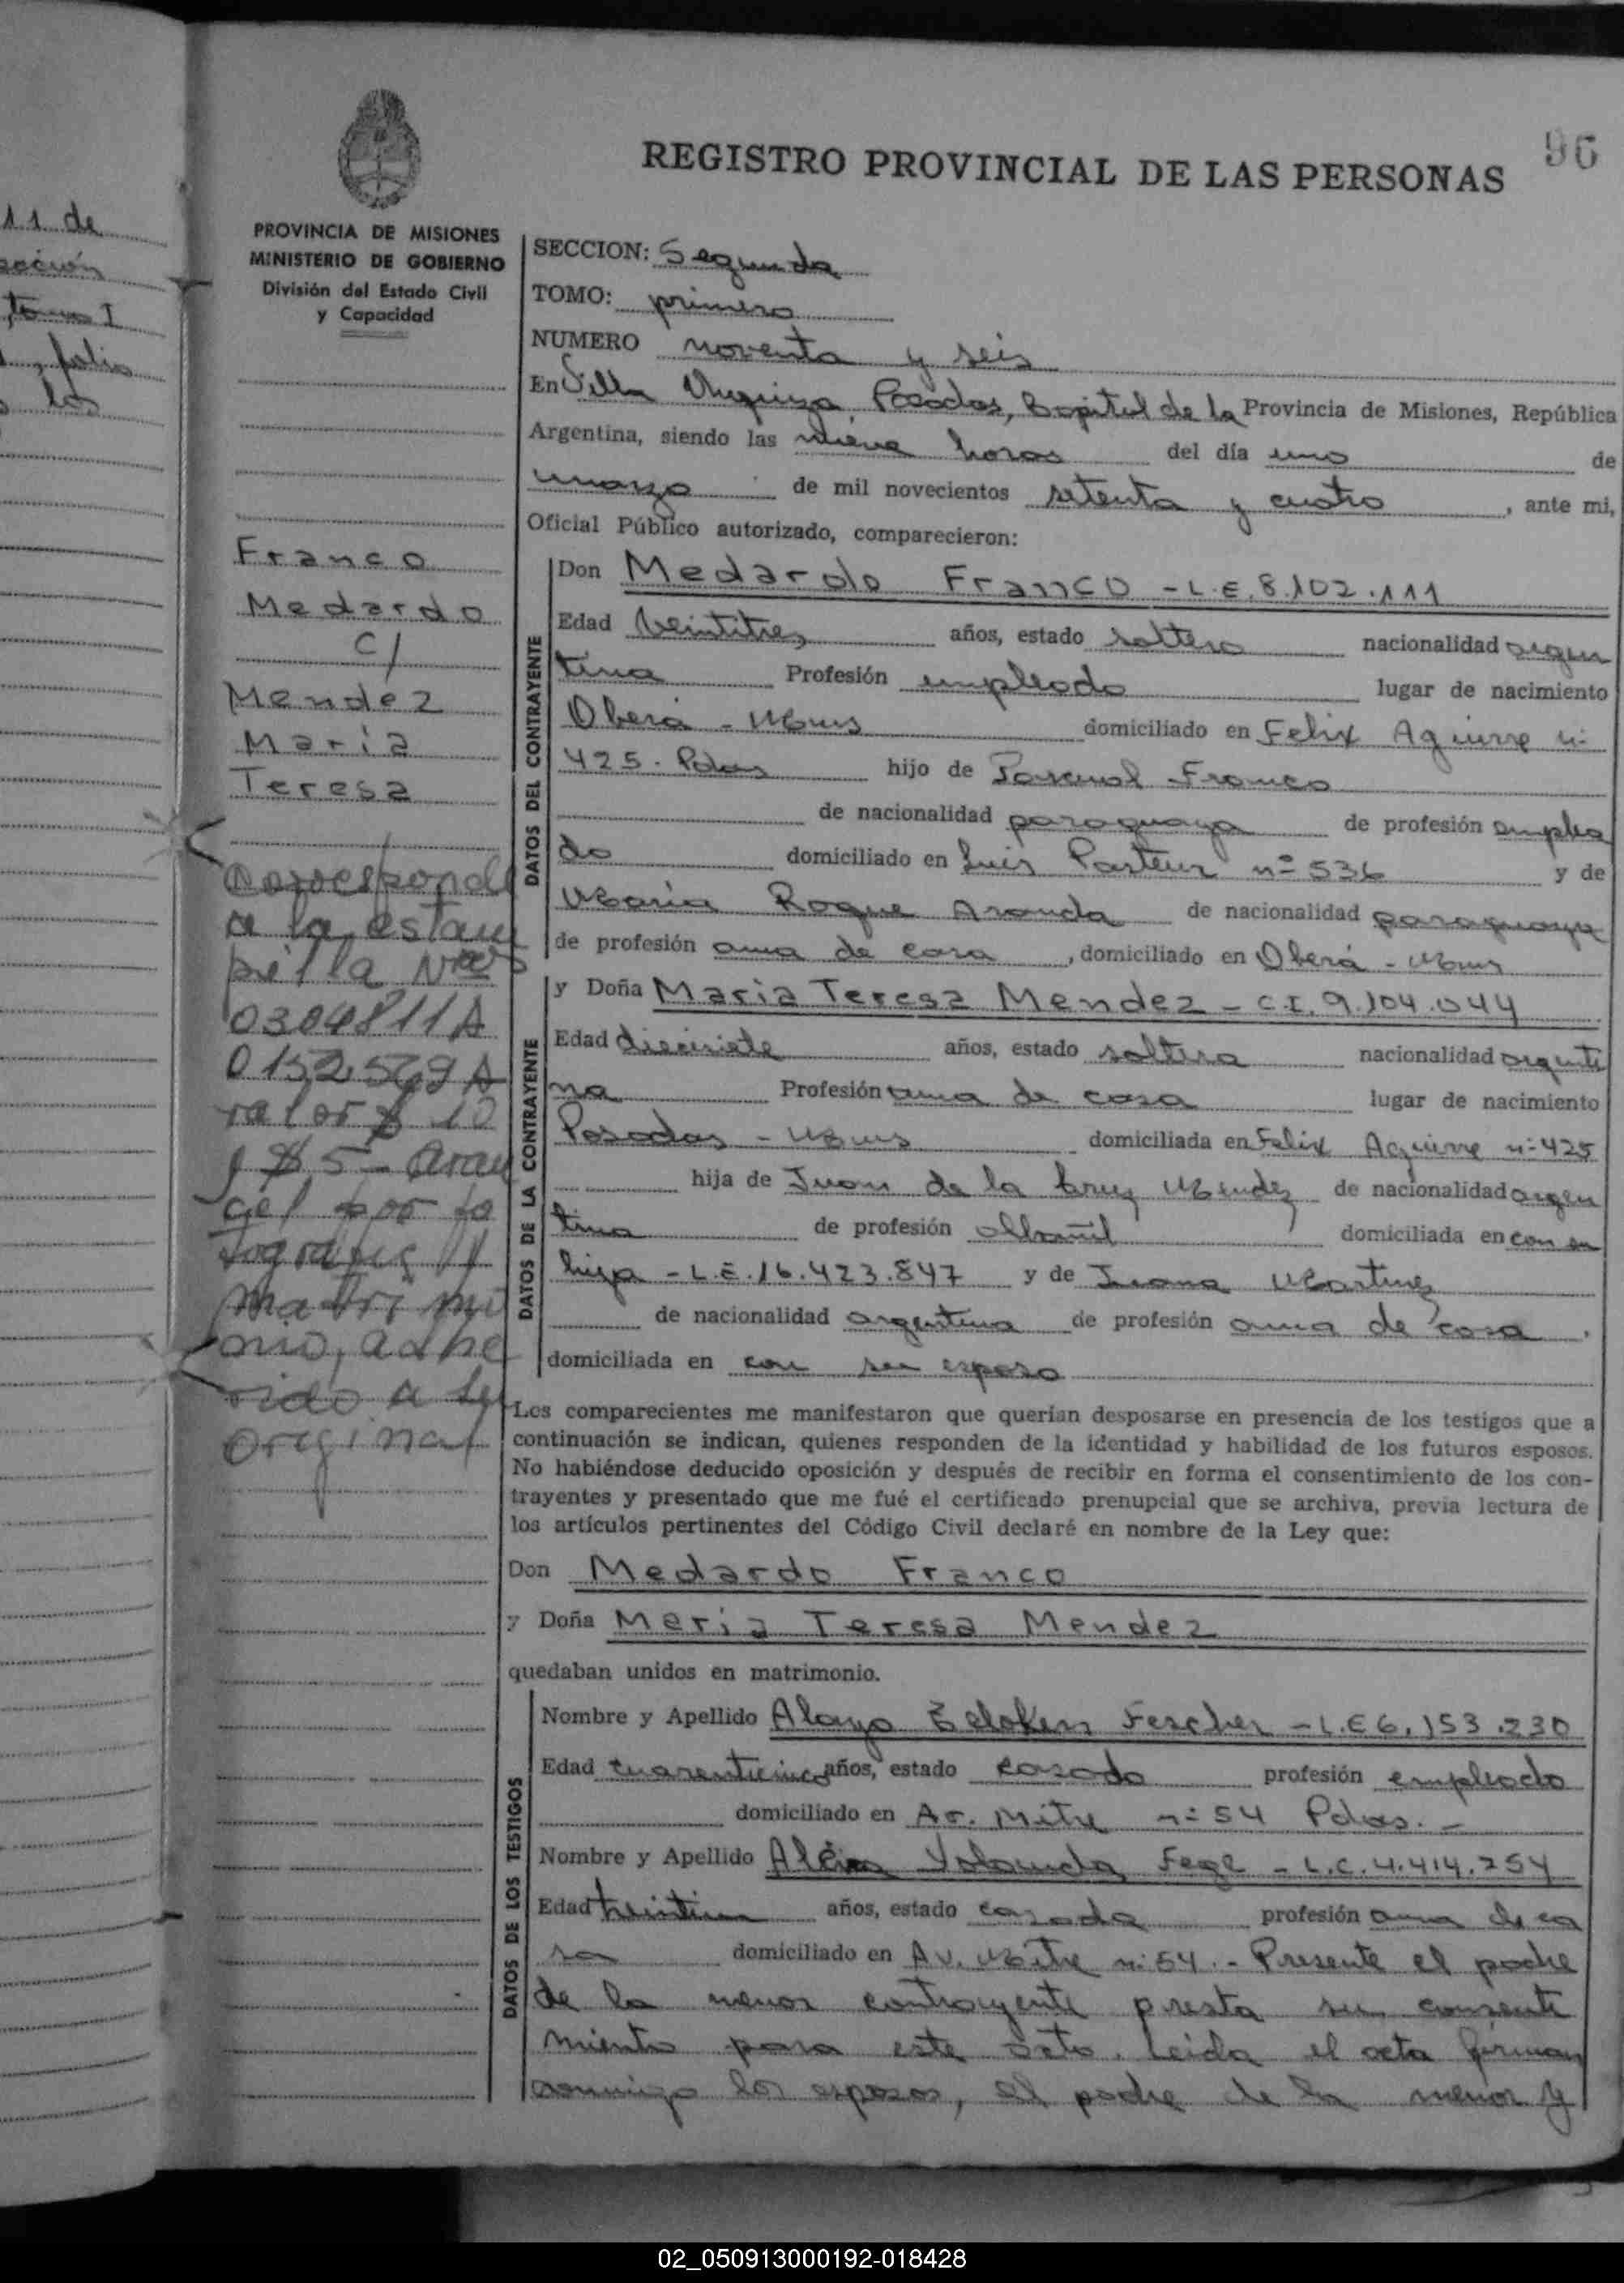 96
REGISTRO PROVINCIAL DE LAS PERSONAS
11 de
tomo I
folio
los
PROVINCIA DE MISIONES
MINISTERIO DE GOBIERNO
División del Estado Civil
y Capacidad
Franco
Medardo
c/
Mendez
María
Teresa
Corresponde
a la estam
pilla Nros
0304811A
0152569A
valor $ 10
y $ 5 - aran
cel por fo
tografia
matrimo
nio, adhe
rido a su
original
SECCION: Segunda
TOMO: primero
NUMERO noventa y seis
En Villa Urquiza, Posadas, Capital de la Provincia de Misiones, República
Argentina, siendo las nueve horas del día uno de
marzo de mil novecientos setenta y cuatro, ante mi,
Oficial Público autorizado, comparecieron:
DATOS DEL CONTRAYENTE
Don Medardo Franco - L.E. 8.102.111
Edad veintitres años, estado soltero nacionalidad argen
tina Profesión empleado lugar de nacimiento
Oberá - Mnes domiciliado en Felix Aguirre nº
425. Pdas hijo de Pascual Franco
de nacionalidad paraguaya de profesión emplea
do domiciliado en Luis Pasteur nº 536 y de
Maria Roque Aranda de nacionalidad paraguaya
de profesión ama de casa, domiciliado en Oberá - Mnes
DATOS DE LA CONTRAYENTE
y Doña Maria Teresa Mendez - C.I. 9.104.044
Edad diecisiete años, estado soltera nacionalidad argenti
na Profesión ama de casa lugar de nacimiento
Posadas - Mnes domiciliada en Felix Aguirre nº 425
hija de Juan de la Cruz Mendez de nacionalidad argen
tina de profesión albañil domiciliada en con su
hija - L.E. 16.423.847 y de Juana Martinez
de nacionalidad argentina de profesión ama de casa.
domiciliada en con su esposo
Los comparecientes me manifestaron que querían desposarse en presencia de los testigos que a
continuación se indican, quienes responden de la identidad y habilidad de los futuros esposos.
No habiéndose deducido oposición y después de recibir en forma el consentimiento de los con-
trayentes y presentado que me fué el certificado prenupcial que se archiva, previa lectura de
los artículos pertinentes del Código Civil declaré en nombre de la Ley que:
Don Medardo Franco
y Doña Maria Teresa Mendez
quedaban unidos en matrimonio.
DATOS DE LOS TESTIGOS
Nombre y Apellido Fescher - L.E 6.153.230
Edad cuarenticinco años, estado casado profesión empleado
domiciliado en Av. Mitre nº 54 Pdas. -
Nombre y Apellido Yolanda Fege - L.C. 4.414.254
Edad años, estado casada profesión ama de ca
sa domiciliado en Av. Mitre nº 54. - Presente el padre
de la menor contrayente presta su consenti
miento para este acto. Leida el acta firman
conmigo los esposos, el padre de la menor y
02_050913000192-018428